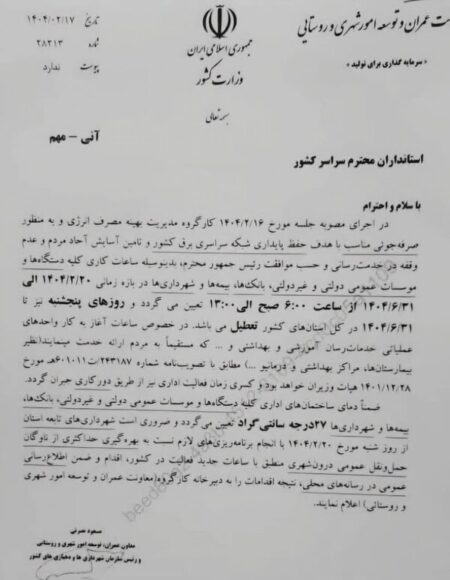 ت عمران و توسعه امور شهری و روستایی
« سرمایه گذاری برای تولید »
جمهوری اسلامی ایران
وزارت کشور
بسمه تعالی
تاریخ ۱۴۰۴/۰۲/۱۷
شماره ۲۸۲۱۳
پیوست ندارد
آنی – مهم
استانداران محترم سراسر کشور
با سلام و احترام
در اجرای مصوبه جلسه مورخ ۱۴۰۴/۲/۱۶ کارگروه مدیریت بهینه مصرف انرژی و به منظور
صرفه‌جوئی مناسب با هدف حفظ پایداری شبکه سراسری برق کشور و تامین آسایش آحاد مردم و عدم
وقفه در خدمت‌رسانی و حسب موافقت رئیس جمهور محترم، بدینوسیله ساعات کاری کلیه دستگاه‌ها و
موسسات عمومی دولتی و غیردولتی، بانک‌ها، بیمه‌ها و شهرداری‌ها در بازه زمانی ۱۴۰۴/۲/۲۰ الی
۱۴۰۴/۶/۳۱ از ساعت ۶:۰۰ صبح الی۱۳:۰۰ تعیین می گردد و روزهای پنجشنبه نیز تا
۱۴۰۴/۶/۳۱ در کل استان‌های کشور تعطیل می باشد. در خصوص ساعات آغاز به کار واحدهای
عملیاتی خدمات‌رسان آموزشی و بهداشتی و ... که مستقیماً به مردم ارائه خدمت مینمایند(نظیر
بیمارستان‌ها، مراکز بهداشتی و درمانیو ...) مطابق با تصویب‌نامه شماره ۲۴۳۱۸۷/ت۶۰۱۰۱۱هـ مورخ
۱۴۰۱/۱۲/۲۸ هیات وزیران خواهد بود و کسری زمان فعالیت اداری نیز از طریق دورکاری جبران گردد.
ضمناً دمای ساختمان‌های اداری کلیه دستگاه‌ها و موسسات عمومی دولتی و غیردولتی، بانک‌ها،
بیمه‌ها و شهرداری‌ها ۲۷درجه سانتی‌گراد تعیین می‌گردد و ضروری است شهرداری‌های تابعه استان
از روز شنبه مورخ ۱۴۰۴/۲/۲۰ با انجام برنامه‌ریزی‌های لازم نسبت به بهره‌گیری حداکثری از ناوگان
حمل‌ونقل عمومی درون‌شهری منطبق با ساعات جدید فعالیت در کشور، اقدام و ضمن اطلاع‌رسانی
عمومی در رسانه‌های محلی، نتیجه اقدامات را به دبیرخانه کارگروه(معاونت عمران و توسعه امور شهری
و روستائی) اعلام نمایند.
مسعود نصرتی
معاون عمران، توسعه امور شهری و روستائی
و رئیس سازمان شهرداری ها و دهیاری های کشور